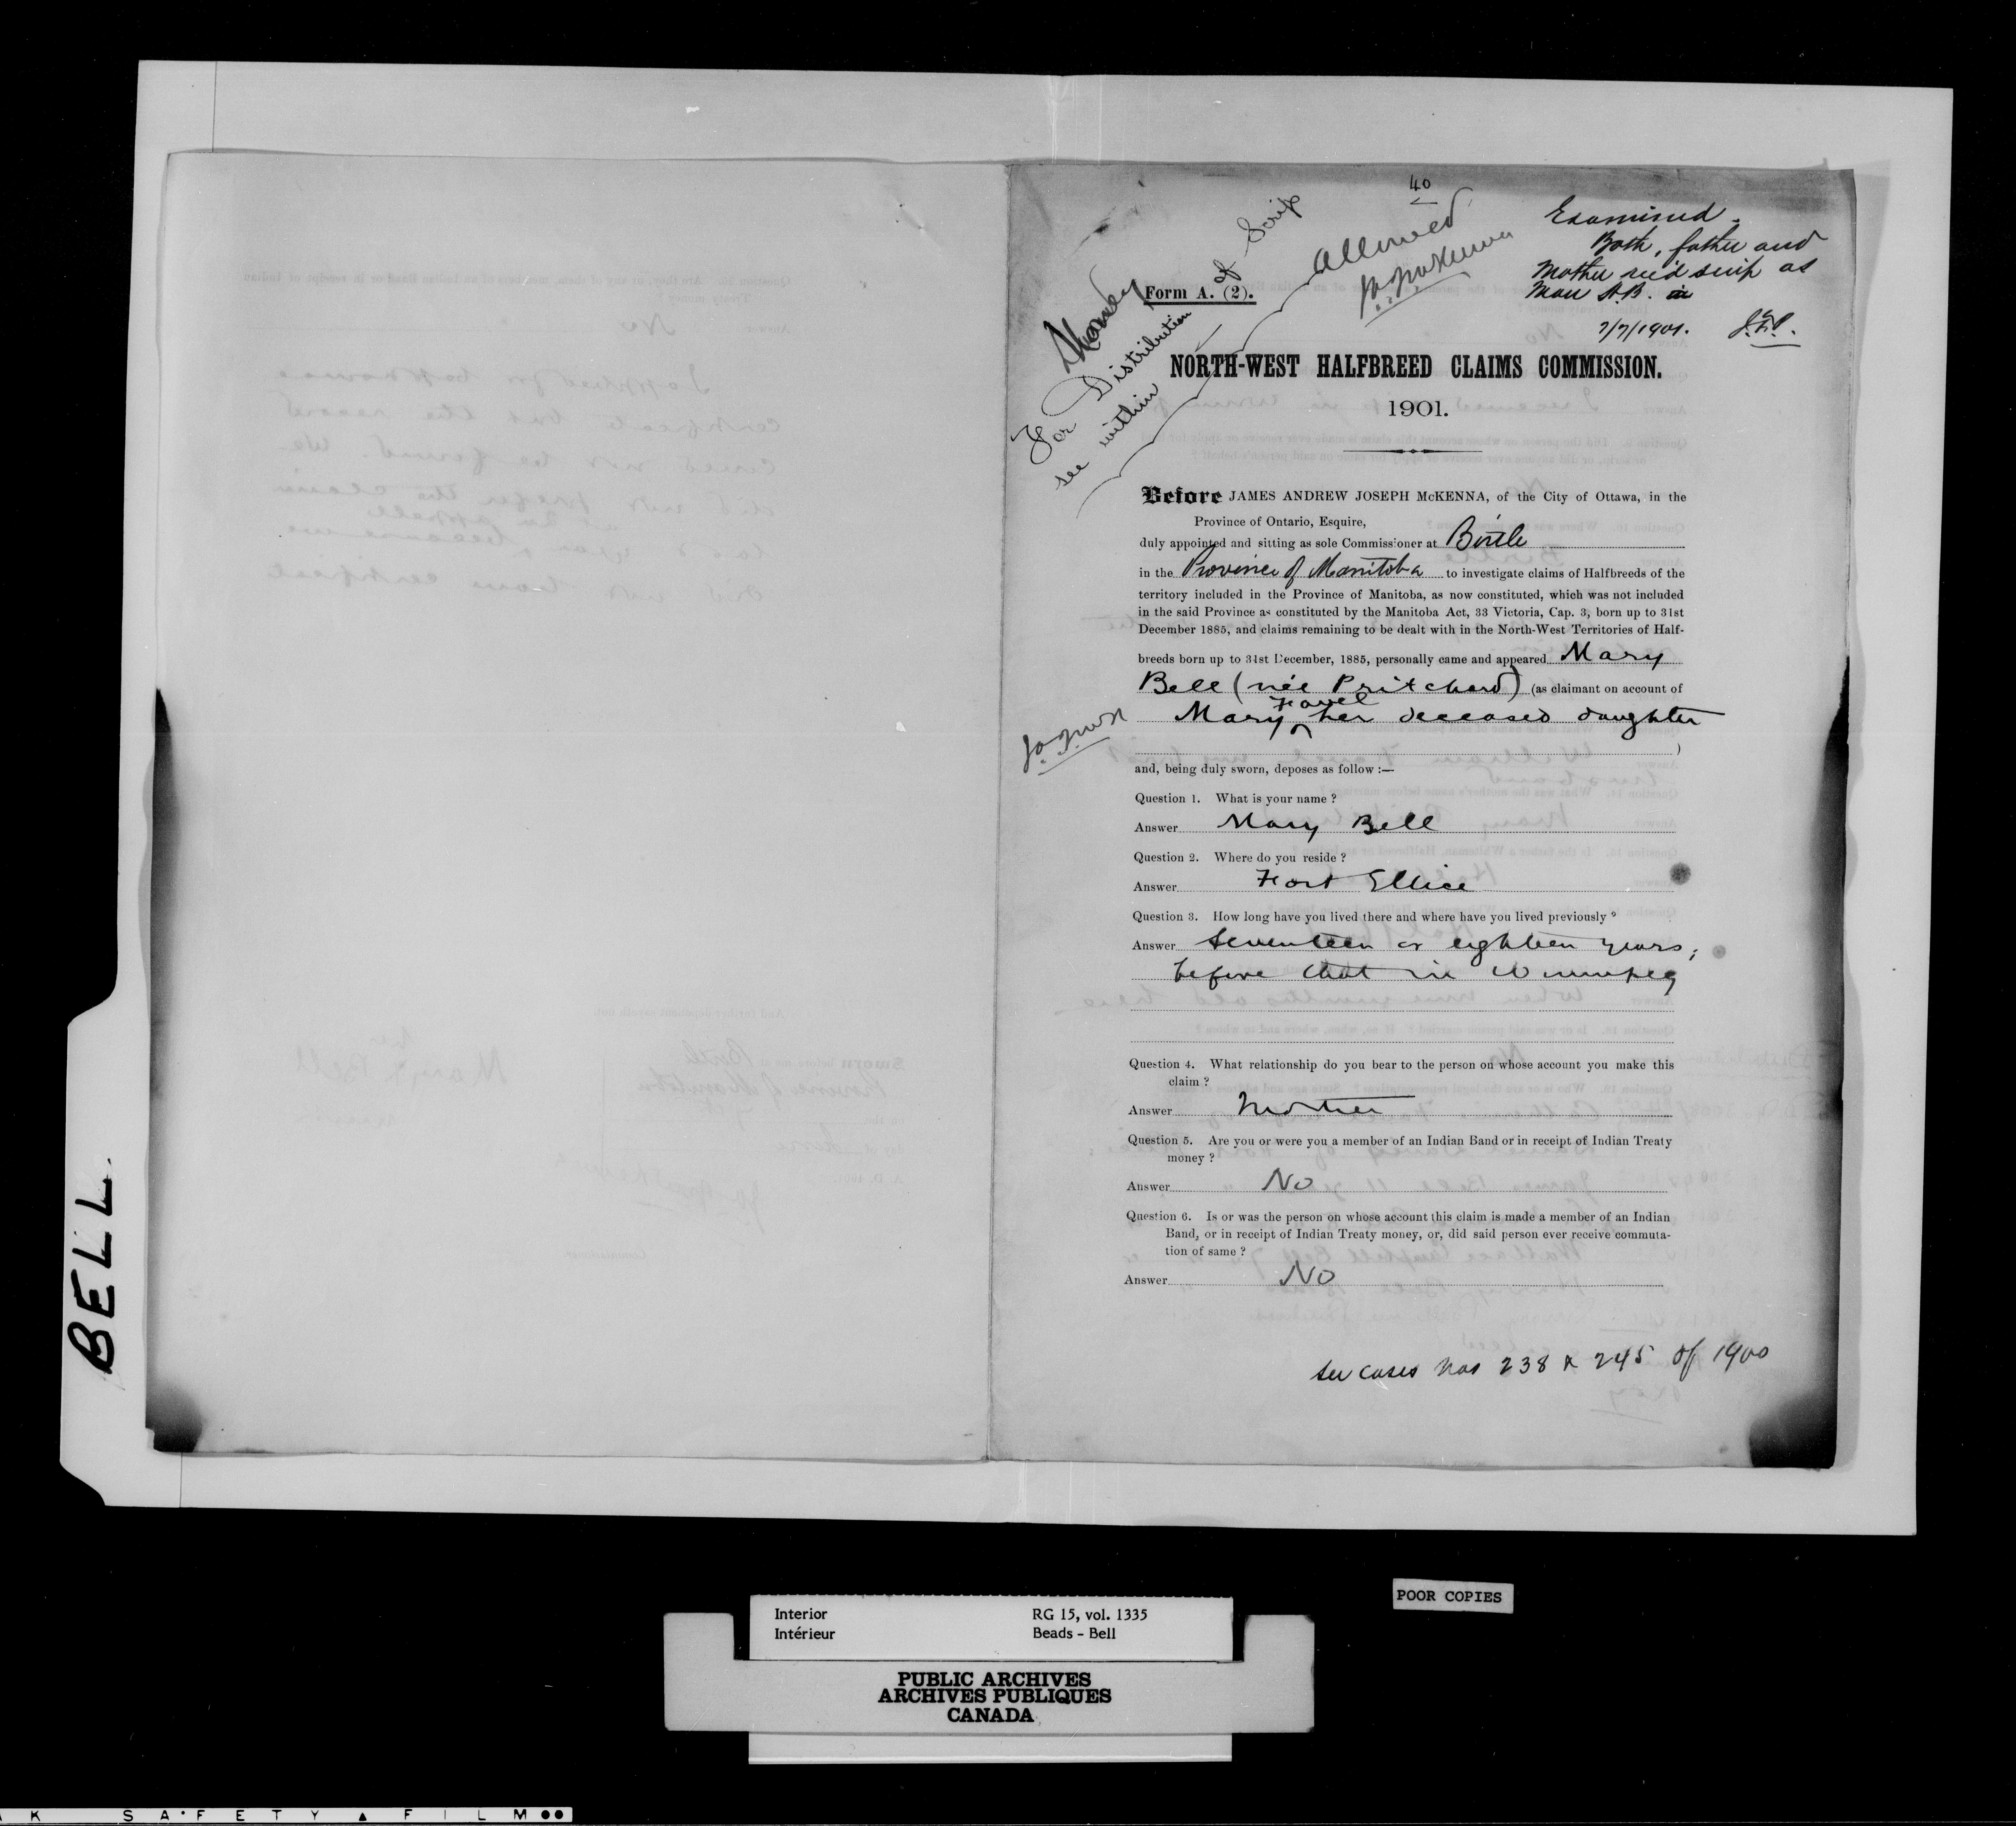 40
allowed
J.A.J. McKenna
Examined.
Both, father and
Mother rec'd scrip as
Man H.B.
7/7/1901.
Money
For Distribution of Scrip
see within
Form A. (2).
NORTH-WEST HALFBREED CLAIMS COMMISSION.
1901.
Before JAMES ANDREW JOSEPH McKENNA, of the City of Ottawa, in the
Province of Ontario, Esquire,
duly appointed and sitting as sole Commissioner at Birtle
in the Province of Manitoba to investigate claims of Halfbreeds of the
territory included in the Province of Manitoba, as now constituted, which was not included
in the said Province as constituted by the Manitoba Act, 33 Victoria, Cap. 3, born up to 31st
December 1885, and claims remaining to be dealt with in the North-West Territories of Half-
breeds born up to 31st December, 1885, personally came and appeared Mary
Bell (née Pritchard) (as claimant on account of
Mary Favel her deceased daughter
)
J.A.J. McK
and, being duly sworn, deposes as follow :—
Question 1. What is your name ?
Answer Mary Bell
Question 2. Where do you reside ?
Answer Fort Ellice
Question 3. How long have you lived there and where have you lived previously ?
Answer Seventeen or eighteen years;
before that in Winnipeg
Question 4. What relationship do you bear to the person on whose account you make this
claim ?
Answer Mother
Question 5. Are you or were you a member of an Indian Band or in receipt of Indian Treaty
money ?
Answer No
Question 6. Is or was the person on whose account this claim is made a member of an Indian
Band, or in receipt of Indian Treaty money, or, did said person ever receive commuta-
tion of same ?
Answer No
See cases Nos 238 & 245 of 1900
BELL.
POOR COPIES
Interior RG 15, vol. 1335
Intérieur Beads - Bell
PUBLIC ARCHIVES
ARCHIVES PUBLIQUES
CANADA
K SAFETY ▲ FILM ●●